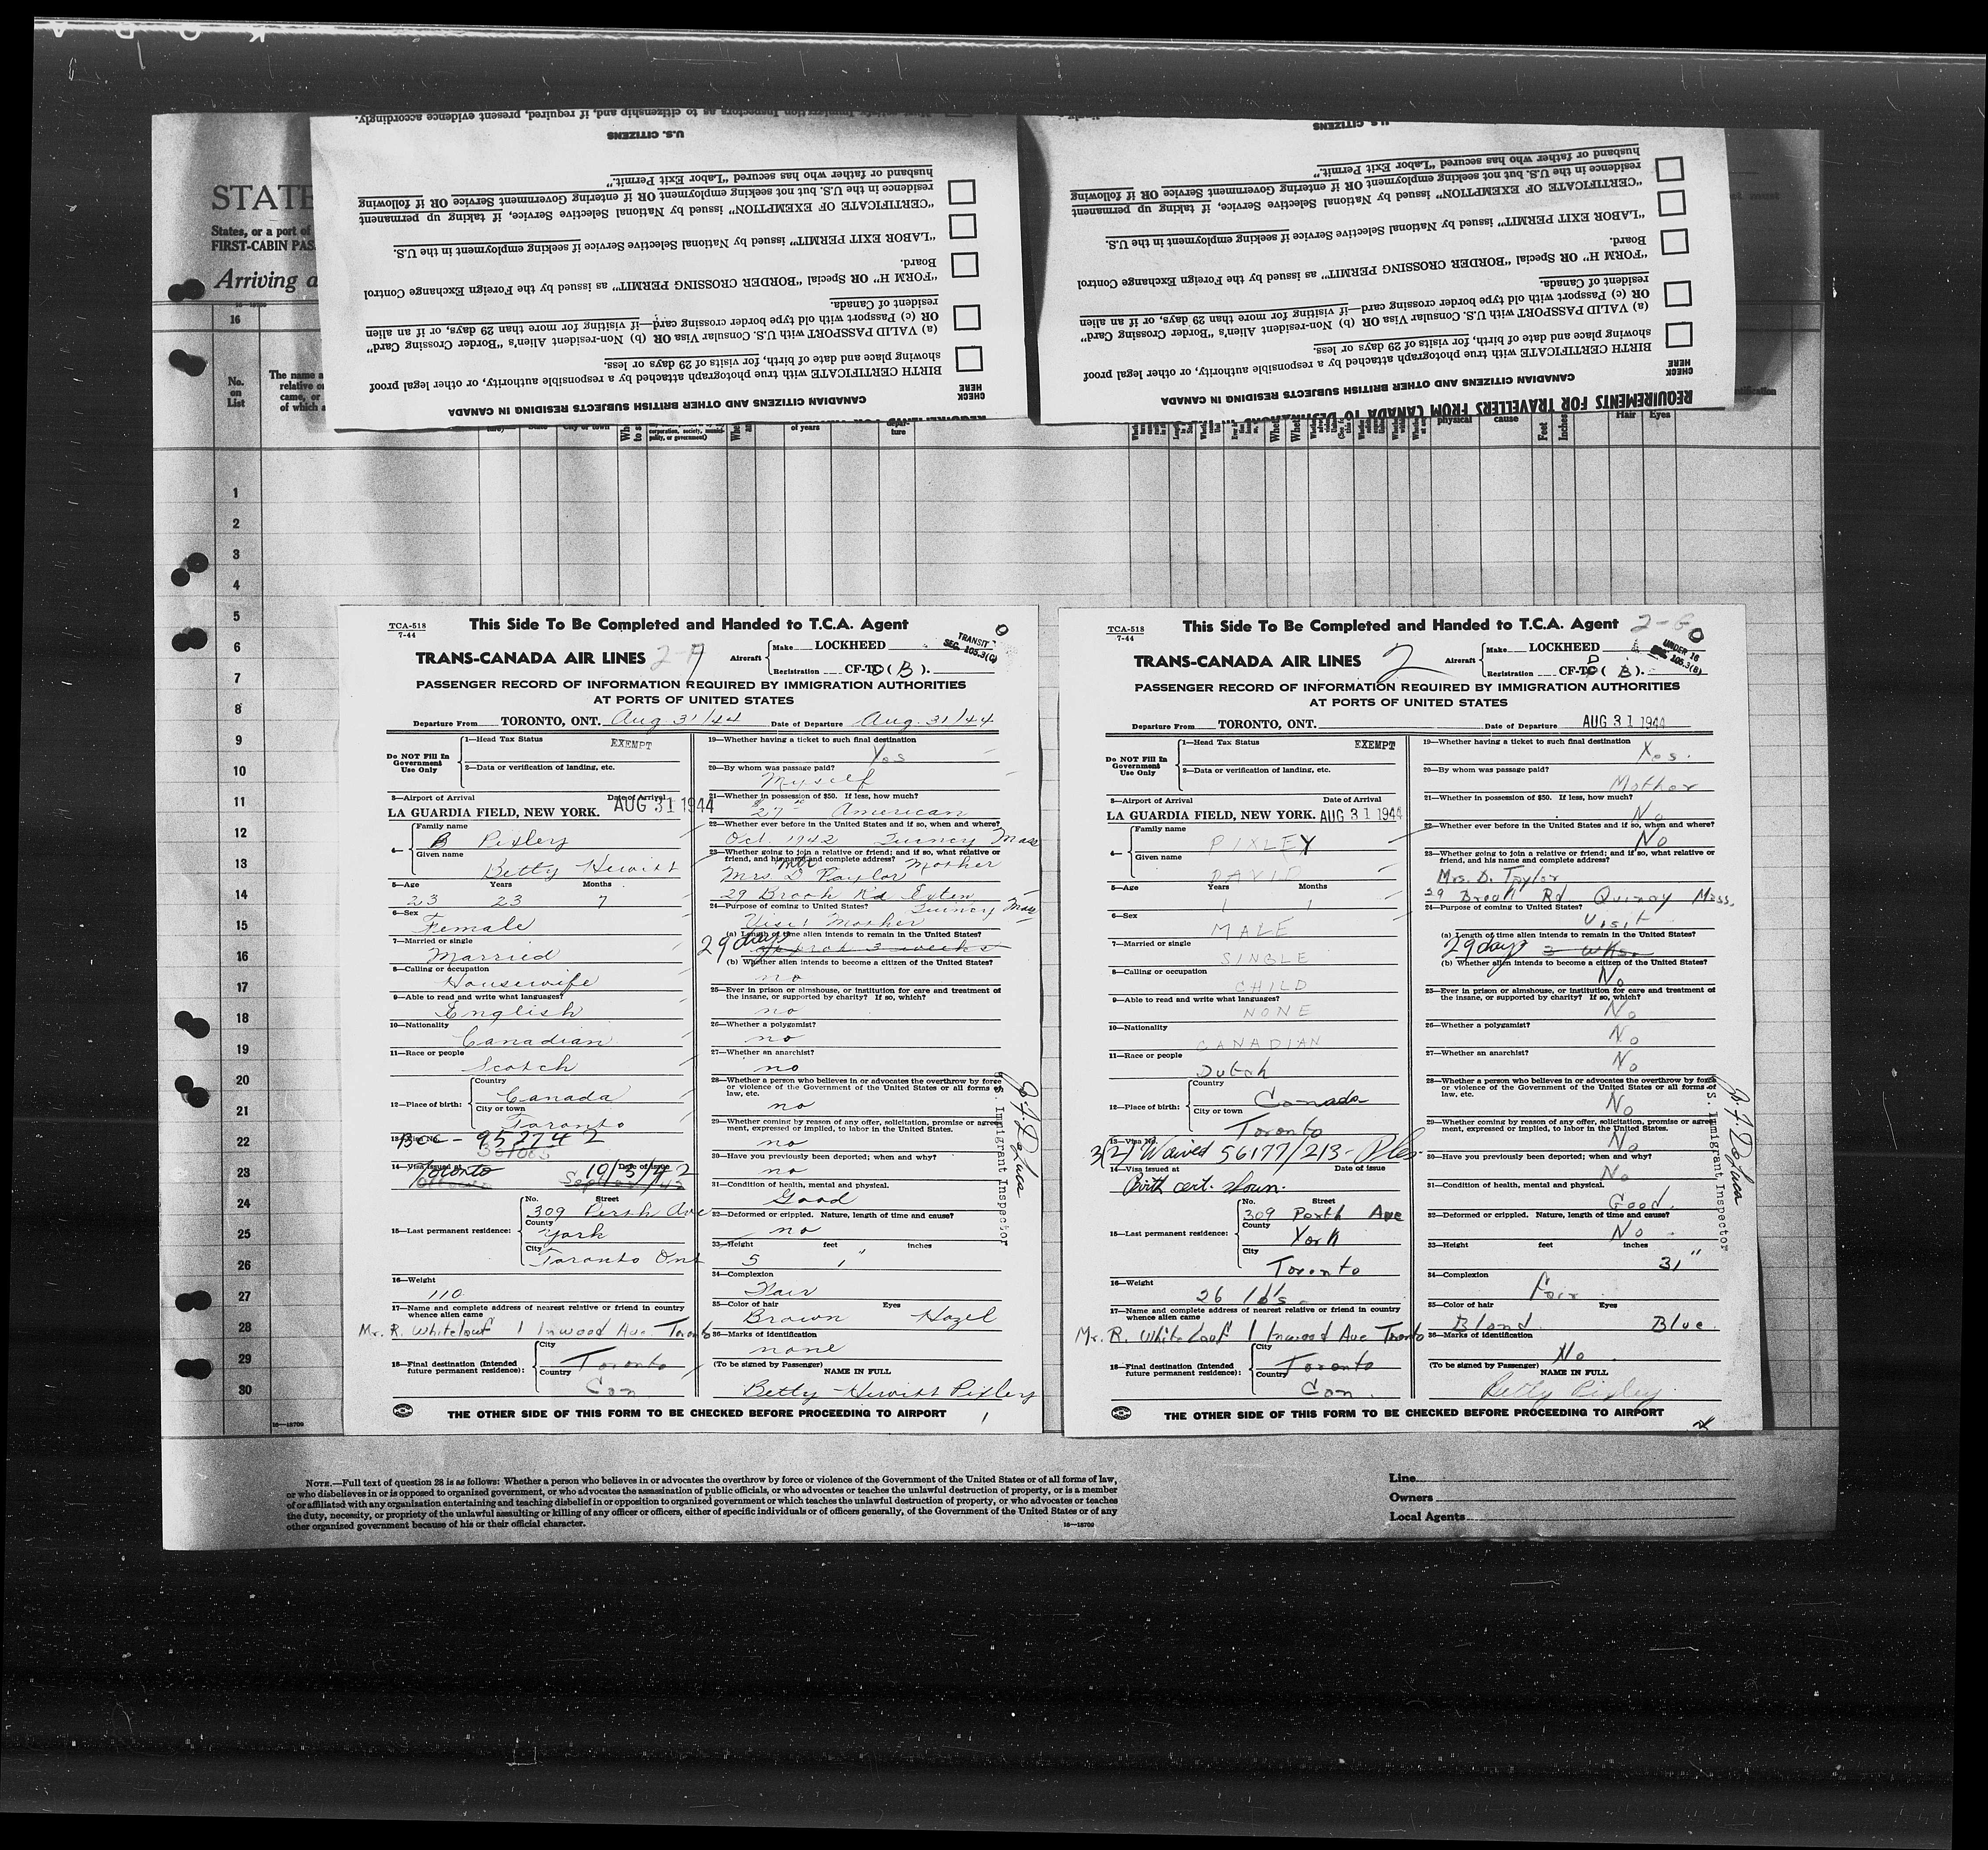 STATE
States, or a port of
FIRST-CABIN PAS
Arriving a
16
No. on List
The name a
relative o
came, or
of which a
REQUIREMENTS FOR TRAVELLERS FROM CANADA TO
CANADIAN CITIZENS AND OTHER BRITISH SUBJECTS RESIDING IN CANADA
CHECK HERE
BIRTH CERTIFICATE with true photograph attached by a responsible authority, or other legal proof
showing place and date of birth, for visits of 29 days or less.
(a) VALID PASSPORT with U.S. Consular Visa OR (b) Non-resident Alien's "Border Crossing Card"
OR (c) Passport with old type border crossing card—if visiting for more than 29 days, or if an alien
resident of Canada.
"FORM H" OR Special "BORDER CROSSING PERMIT" as issued by the Foreign Exchange Control
Board.
"LABOR EXIT PERMIT" issued by National Selective Service if seeking employment in the U.S.
"CERTIFICATE OF EXEMPTION" issued by National Selective Service, if taking up permanent
residence in the U.S. but not seeking employment OR if entering Government Service OR if following
husband or father who has secured "Labor Exit Permit."
U.S. CITIZENS
Immigration Inspectors as to citizenship and, if required, present evidence accordingly.
CANADIAN CITIZENS AND OTHER BRITISH SUBJECTS RESIDING IN CANADA
CHECK HERE
BIRTH CERTIFICATE with true photograph attached by a responsible authority, or other legal proof
showing place and date of birth, for visits of 29 days or less.
(a) VALID PASSPORT with U.S. Consular Visa OR (b) Non-resident Alien's "Border Crossing Card"
OR (c) Passport with old type border crossing card—if visiting for more than 29 days, or if an alien
resident of Canada.
"FORM H" OR Special "BORDER CROSSING PERMIT" as issued by the Foreign Exchange Control
Board.
"LABOR EXIT PERMIT" issued by National Selective Service if seeking employment in the U.S.
"CERTIFICATE OF EXEMPTION" issued by National Selective Service, if taking up permanent
residence in the U.S. but not seeking employment OR if entering Government Service OR if following
husband or father who has secured "Labor Exit Permit."
U.S. CITIZENS
City or town
of years
physical
cause
Feet
Inches
Hair
Eyes
1
2
3
4
5
6
7
8
9
10
11
12
13
14
15
16
17
18
19
20
21
22
23
24
25
26
27
28
29
30
16—18709
TCA-518
7-44
This Side To Be Completed and Handed to T.C.A. Agent
TRANS-CANADA AIR LINES
Aircraft
Make LOCKHEED
Registration CF-TC (B).
TRANSIT
SEC. 105.3(C)
PASSENGER RECORD OF INFORMATION REQUIRED BY IMMIGRATION AUTHORITIES
AT PORTS OF UNITED STATES
Departure From TORONTO, ONT. Aug 31/44 Date of Departure Aug. 31/44
Do NOT Fill In Government Use Only
1—Head Tax Status EXEMPT
2—Data or verification of landing, etc.
3—Airport of Arrival Date of Arrival
LA GUARDIA FIELD, NEW YORK. AUG 31 1944
4— Family name
B Pixley
Given name
Betty Hewitt
5—Age Years Months
23 23 7
6—Sex
Female
7—Married or single
Married
8—Calling or occupation
Housewife
9—Able to read and write what languages?
English
10—Nationality
Canadian
11—Race or people
Scotch
12—Place of birth: Country
Canada
City or town
Toronto
13—Visa No.
Bcc - 952742
14—Visa issued at Date of issue
Toronto 10/5/42
15—Last permanent residence: No. Street
309 Perth Ave
County
York
City
Toronto Ont
16—Weight
110
17—Name and complete address of nearest relative or friend in country
whence alien came
Mr. R. Whitelouf 1 Inwood Ave. Toronto
18—Final destination (Intended
future permanent residence):
City
Toronto
Country
Can
19—Whether having a ticket to such final destination
Yes
20—By whom was passage paid?
Myself
21—Whether in possession of $50. If less, how much?
$27 American
22—Whether ever before in the United States and if so, when and where?
Oct. 1942 Quincy Mass
23—Whether going to join a relative or friend; and if so, what relative or
friend, and his name and complete address?
Mother
Mrs D Taylor
29 Brook Rd Exten
Quincy Mass
24—Purpose of coming to United States?
Visit Mother
(a) Length of time alien intends to remain in the United States?
29 days approx 3 weeks
(b) Whether alien intends to become a citizen of the United States?
no
25—Ever in prison or almshouse, or institution for care and treatment of
the insane, or supported by charity? If so, which?
no
26—Whether a polygamist?
no
27—Whether an anarchist?
no
28—Whether a person who believes in or advocates the overthrow by force
or violence of the Government of the United States or all forms of
law, etc.
no
29—Whether coming by reason of any offer, solicitation, promise or agree-
ment, expressed or implied, to labor in the United States.
no
30—Have you previously been deported; when and why?
no
31—Condition of health, mental and physical.
Good
32—Deformed or crippled. Nature, length of time and cause?
no
33—Height feet inches
5 1"
34—Complexion
Fair
35—Color of hair Eyes
Brown Hazel
36—Marks of identification
none
(To be signed by Passenger) NAME IN FULL
Betty Hewitt Pixley
U.S. Immigrant Inspector
THE OTHER SIDE OF THIS FORM TO BE CHECKED BEFORE PROCEEDING TO AIRPORT
1
TCA-518
7-44
This Side To Be Completed and Handed to T.C.A. Agent
TRANS-CANADA AIR LINES 2
Aircraft
Make LOCKHEED
Registration CF-TC (B).
UNDER 16
SEC. 105.3(B)
PASSENGER RECORD OF INFORMATION REQUIRED BY IMMIGRATION AUTHORITIES
AT PORTS OF UNITED STATES
Departure From TORONTO, ONT. Date of Departure AUG 31 1944
Do NOT Fill In Government Use Only
1—Head Tax Status EXEMPT
2—Data or verification of landing, etc.
3—Airport of Arrival Date of Arrival
LA GUARDIA FIELD, NEW YORK. AUG 31 1944
4— Family name
PIXLEY
Given name
DAVID
5—Age Years Months
1 1
6—Sex
MALE
7—Married or single
SINGLE
8—Calling or occupation
CHILD
9—Able to read and write what languages?
NONE
10—Nationality
CANADIAN
11—Race or people
Dutch
12—Place of birth: Country
Canada
City or town
Toronto
13—Visa No.
3(2) Waived 56177/213
14—Visa issued at Date of issue
Birth cert. shown.
15—Last permanent residence: No. Street
309 Perth Ave
County
York
City
Toronto
16—Weight
26 lbs.
17—Name and complete address of nearest relative or friend in country
whence alien came
Mr. R. Whitelouf 1 Inwood Ave Toronto
18—Final destination (Intended
future permanent residence):
City
Toronto
Country
Can.
19—Whether having a ticket to such final destination
Yes.
20—By whom was passage paid?
Mother
21—Whether in possession of $50. If less, how much?
No
22—Whether ever before in the United States and if so, when and where?
No
23—Whether going to join a relative or friend; and if so, what relative or
friend, and his name and complete address?
Mrs. D. Taylor
29 Brook Rd Quincy Mass.
24—Purpose of coming to United States?
Visit
(a) Length of time alien intends to remain in the United States?
29 days 3 wks.
(b) Whether alien intends to become a citizen of the United States?
No
25—Ever in prison or almshouse, or institution for care and treatment of
the insane, or supported by charity? If so, which?
No
26—Whether a polygamist?
No
27—Whether an anarchist?
No
28—Whether a person who believes in or advocates the overthrow by force
or violence of the Government of the United States or all forms of
law, etc.
No
29—Whether coming by reason of any offer, solicitation, promise or agree-
ment, expressed or implied, to labor in the United States.
No
30—Have you previously been deported; when and why?
No
31—Condition of health, mental and physical.
Good.
32—Deformed or crippled. Nature, length of time and cause?
No.
33—Height feet inches
31"
34—Complexion
Fair
35—Color of hair Eyes
Blond. Blue.
36—Marks of identification
No.
(To be signed by Passenger) NAME IN FULL
Betty Pixley.
U.S. Immigrant Inspector
THE OTHER SIDE OF THIS FORM TO BE CHECKED BEFORE PROCEEDING TO AIRPORT
NOTE.—Full text of question 28 is as follows: Whether a person who believes in or advocates the overthrow by force or violence of the Government of the United States or of all forms of law,
or who disbelieves in or is opposed to organized government, or who advocates the assassination of public officials, or who advocates or teaches the unlawful destruction of property, or is a member
of or affiliated with any organization entertaining and teaching disbelief in or opposition to organized government or which teaches the unlawful destruction of property, or who advocates or teaches
the duty, necessity, or propriety of the unlawful assaulting or killing of any officer or officers, either of specific individuals or of officers generally, of the Government of the United States or of any
other organized government because of his or their official character.
16—18709
Line
Owners
Local Agents